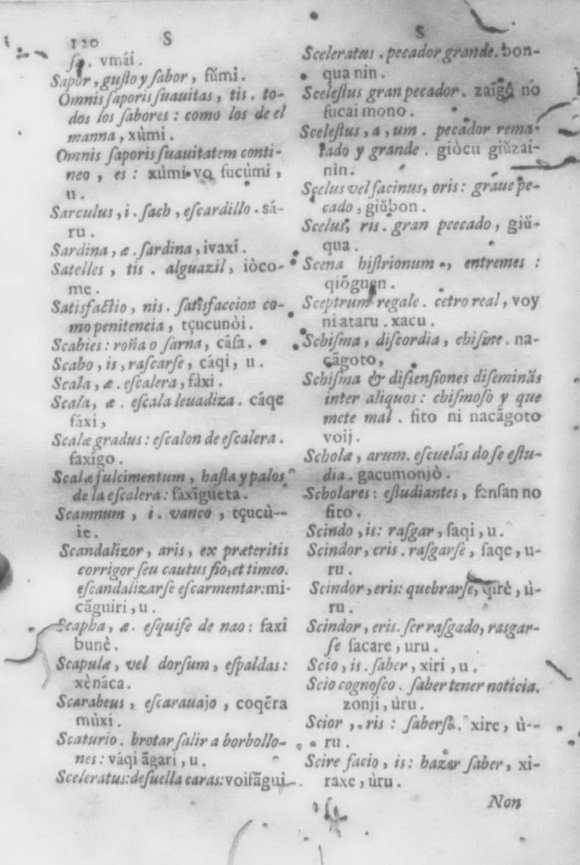 120 S
ſa. vmái.
Sapor, guſto y ſabor, fúmi.
Omnis ſaporis ſuauitas, tis. to-
dos los ſabores: como los de el
manna, xùmi.
Omnis ſaporis ſuauitatem conti-
neo, es: xùmi vo fucúmi,
u.
Sarculus, i. ſach, eſcardillo. sá-
ru.
Sardina, æ. ſardina, ivaxi.
Satelles, tis. alguazil, iòco-
me.
Satisfactio, nis. ſatisfaccion co-
mo penitencia, tçucunòi.
Scabies: roña o ſarna, cáſa.
Scabo, is, raſcarſe, cáqi, u.
Scala, æ. eſcalera, fàxi.
Scala, æ. eſcala leuadiza. cáqe
fáxi,
Scalæ gradus: eſcalon de eſcalera.
faxigo.
Scalæ fulcimentum, haſta y palos
de la eſcalera: faxigueta.
Scamnum, i. vanco, tçucù--
ie.
Scandalizor, aris, ex præteritis
corrigor ſeu cautus fio, et timeo.
eſcandalizarſe eſcarmentar: mi-
cãguiri, u.
Scapha, æ. eſquife de nao: faxi
bunè.
Scapulæ, vel dorſum, eſpaldas:
xènáca.
Scarabeus, eſcarauajo, coqẽra
múxi.
Scaturio. brotar ſalir a borbollo-
nes: váqi ãgari, u.
Sceleratus: deſuella caras: voifãgui
S
Sceleratus. pecador grande. bon-
qua nin.
Sceleſtus gran pecador. zaigǒ no
fucai mono.
Sceleſtus, a, um. pecador rema-
tado y grande. giòcu giǔzai-
nin.
Scelus vel facinus, oris: graue pe-
cado, giǔbon.
Scelus, ris. gran peecado, giǔ-
qua.
Scena hiſtrionum, entremes:
qiõguen.
Sceptrum regale. cetro real, voy
ni ataru. xacu.
Schiſma, diſcordia, chiſme. na-
cãgoto,
Schiſma & diſſenſiones diſeminãs
inter aliquos: chiſmoſo y que
mete mal. fito ni nacãgoto
voij.
Scholæ, arum. eſcuelas do ſe eſtu-
dia. gacumonjò.
Scholares: eſtudiantes, fenſan no
fito.
Scindo, is: raſgar, ſaqi, u.
Scindor, eris. raſgarſe, ſaqe, u-
ru.
Scindor, eris: quebrarſe, qirè, ù-
ru.
Scindor, eris. ſer raſgado, rasgar-
ſe ſacare, uru.
Scio, is. ſaber, xiri, u.
Scio cognoſco. ſaber tener noticia.
zonji, ùru.
Scior, ris: ſaberſe. xire, ù--
ru.
Scire facio, is: hazer ſaber, xi-
raxe, ùru.
Non